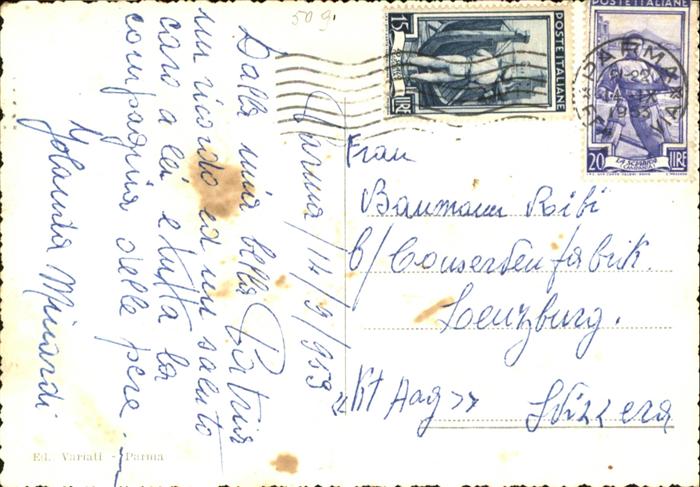 50 g.
Parma/14/9/953
Dalla mia bella Patria
un ricordo ed un saluto
caro a lei e tutta la
compagnia delle pere...
Yolanda Minardi
Ed. Variati - Parma
15
LIRE
POSTE ITALIANE
POSTE ITALIANE
PARMA
20 LIRE
Frau
Baumann Roibi
b/ Conservenfabrik.
Lenzburg.
«Kt Aag» Svizzera